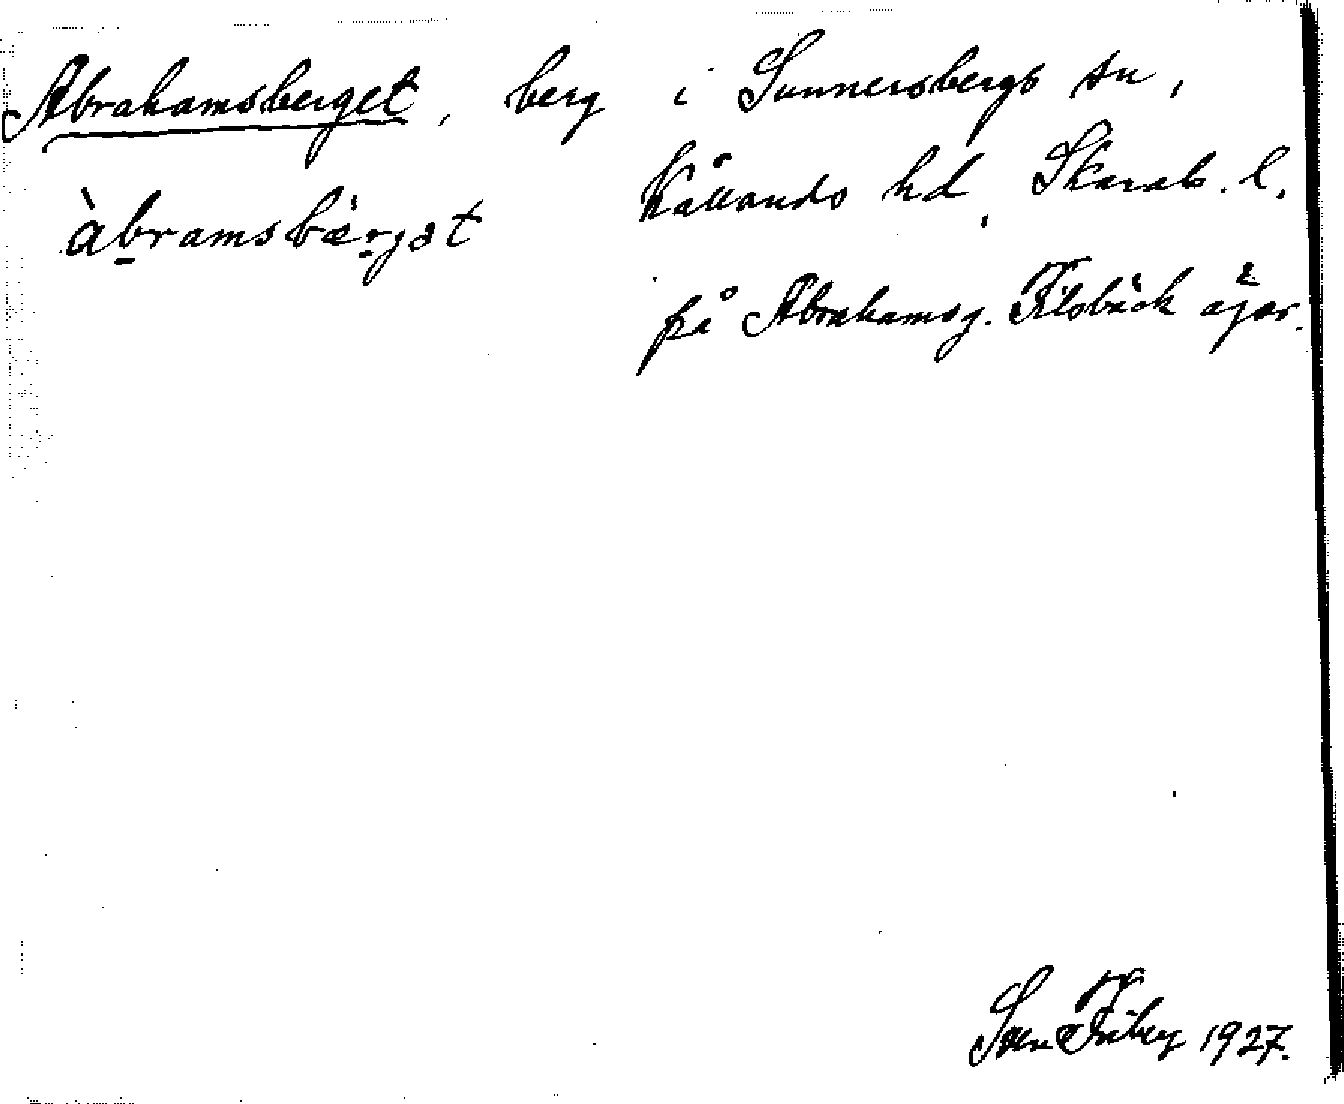 Abrahamsberget, berg i Sunnersbergs sn,
àbramsbärgət Kållands hd, Skarab. l.
på Abrahamsg. Filsbäck ägor.
Sven 1927.